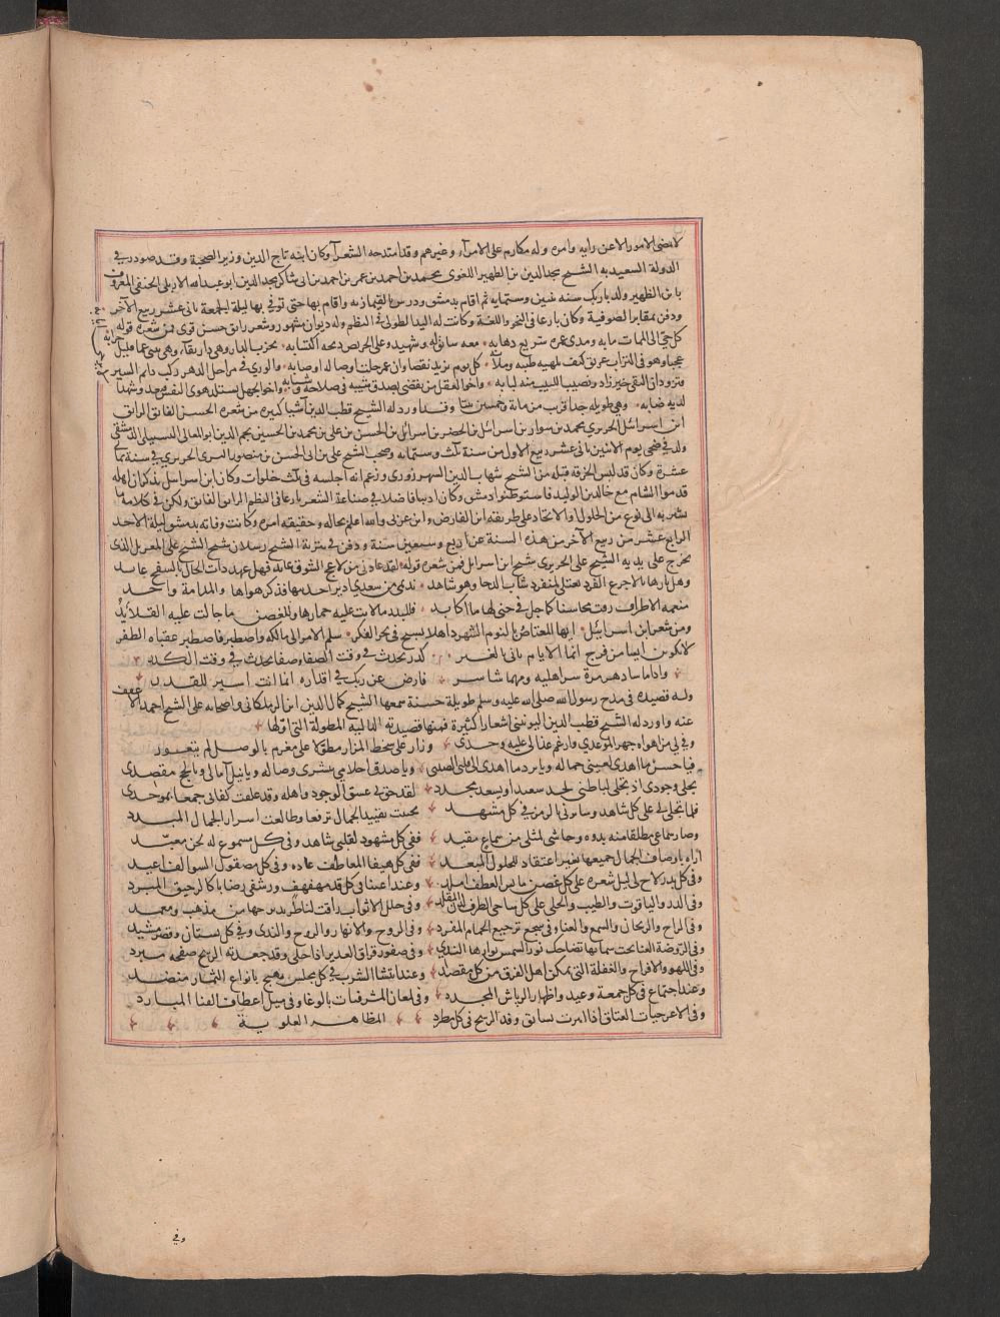 لا تمضى الامور الا عن رايه وامره وله مكارم على الامرآء وغيرهم وقد امتدحه الشعرآ وكان ابنه تاج الدين وزير الصحبة وقد صودر في
الدولة السعيديه الشيخ مجد الدين بن الظهير اللغوى محمد بن احمد بن عمر بن احمد بن ابى شاكر مجد الدين ابو عبد الله الاربلى الحنفى المعروف
بابن الظهير ولد باربك سنه ثنين وستمايه ثم اقام بدمشق ودرس بالقيمازيه واقام بها حتى توفى بها ليلة الجمعة ثانى عشر ربيع الآخر
ودفن بمقابر الصوفية وكان بارعا فى النحو واللغة وكانت له اليد الطولى فى النظم وله ديوان مشهور وشعر رايق حسن قوى فمن شعره قوله
كل حى الى الممات مابه ومدى عمره سريع ذهابه معه سائق له وشهيد وعلى الحرص ويحه اكتسابه يخرب الدار وهى دار بقآء
عجبا وهو فى التراب غريق كيف تلهيه طيبه كل يوم يزيد نقصا وان عمر حلت اوصاله اوصابه والورى فى مراحل الدهر ركب دايم السير
فتزود ان التقى خير زاد ونصيب اللبيب منه لبابه واخو العقل من يقضى بصدق شيبه فى صلاحة وشبابه واخو الجهل يستلذ هوى النفس
لديه صابه وهى طويله جدا قريب من مائة وخمسين بيتا وقد اورد له الشيخ قطب الدين اشيآ كثيره من شعره الحسن الفائق الرائق
ابن اسرائيل الحريرى محمد بن سوار بن اسرائيل بن الخضر بن اسرائيل بن الحسن بن على بن محمد بن الحسين نجم الدين ابو المعالى الشيبانى الدمشقى
ولد فى ضحى يوم الاثنين ثانى عشر ربيع الاول من سنة ثلث وستمايه وصحب الشيخ على بن ابى الحسن بن منصور اليسرى الحريرى فى سنة ثمانى
عشرة وكان قد لبس الخرقه قبله من الشيخ شهاب الدين السهروردى وزعم انه اجلسه فى ثلث خلوات وكان ابن اسرائيل يذكر ان اهله
قدموا الشام مع خالد بن الوليد فاستوطنوا دمشق وكان اديبا فاضلا فى صناعة الشعر بارعا فى النظم الرائق الفائق ولكن فى كلامه ما
يشير به الى نوع من الحلول او الاتحاد على طريقة ابن الفارض وابن عربى والله اعلم بحاله وحقيقه امره وكانت وفاته بدمشق ليلة الاحد
الرابع عشر من ربيع الآخر من هذه السنة عن اربع وسبعين سنة ودفن فى تربة الشيخ رسلان شيخ الشيخ على المغربل الذى
تخرج على يديه الشيخ على الحريرى شيخ ابن اسرائيل فمن شعره قوله لقد عادنى من لاعج الشوق عائد فهل عهد ذات الخال بالسفح عائد
وهل نارها بالاجرع الفرد تعتلى لمنفرد شاب الدجا وهو شاهد نديمى من سعدى اديرا حديثها فذكرى هواها والمدامة واحد
منعمه الاطراف رقت محاسنا كما جل فى حبى لها ما اكابد فللبدر ما لاثت عليه خمارها وللغصن ما جالت عليه القلائد
ومن شعر ابن اسرائيل ايها المعتاض بالنوم السهر ذاهلا يسبح فى بحر الفكر سلم الامر الى مالكه واصطبر فاصطبر عقباه الظفر
لا تكونن آيسا من فرج انما الايام تاتى بالغير كدر يحدث فى وقت الصفا وصفا يحدث فى وقت الكدر
واذا ما ساء دهر مرة سر اهليه ومهما شا سر فارض عن ربك فى اقداره انما انت اسير للقدر
وله قصيده فى مدح رسول الله صلى الله عليه وسلم طويلة حسنة سمعها الشيخ كمال الدين ابن الزملكانى واصحابه على الشيخ احمد الاعفف
عنه واورد له الشيخ قطب الدين اليونينى اشعارا كثيرة فمنها قصيدته الدالية المطولة التى اولها
وفى لى من اهواه جهرا لموعدى وارغم عذالى عليه وحسدى وزار على شحط المزار مطولا على مغرم بالوصل لم يتعود
فيا حسن ما اهدى لعينى جماله ويا برد ما اهدى الى قلبى الصدى ويا صدق احلامى ببشرى وصاله ويا نيل آمالى ويا نجح مقصدى
تجلى وجودى اذ تجلى لباطنى بجد سعيد او بسعد مجدد لقد حق لى عشق الوجود واهله وقد علقت كفاى جمعا بموجدى
فلما تجلى لى على كل شاهد وسامرنى بالرمز فى كل مشهد تجنبت تقييد الجمال ترفعا وطالعت اسرار الجمال المبدد
وصار سماعى مطلقا منه بدوه وحاشى لمثلى من سماع مقيد ففى كل مشهود لقلبى شاهد وفى كل مسموع له لحن معبد
اراه باوصاف الجمال جميعها بغير اعتقاد للحلول المبعد ففى كل هيفا المعاطف غاده وفى كل مصقول السوالف اغيد
وفى كل بدر لاح فى ليل شعره على كل غصن مايس العطف املد وعند اعتناقى كل قد مهفهف ورشفى رضابا كالرحيق المبرد
وفى الدر والياقوت والطيب والحلى على كل ساجى الطرف لدن المقلد وفى حلل الاثواب راقت لناظرى بزبرجها من مذهب ومعمد
وفى الراح والريحان والسمع والغنا وفى سجع ترجيع الحمام المغرد وفى الروح والانهار والروح والندى وفى كل بستان وقصر مشيد
وفى الروضة الغناء تحت سمائها تضاحك نور الشمس نوارها الندى وفى صفو رقراق الغدير اذا حكى وقد جعدته الريح صفحه مبرد
وفى اللهو والافراح والغفلة التى تمكن اهل الفرق من كل مقصد وعند انتشا الشرب فى كل مجلس بهيج بانواع الثمار منضد
وعند اجتماع فى كل جمعة وعيد واظهار الرياش المجدد وفى لمعان المشرفيات بالوغا وفى ميل اعطاف القنا المتاود
وفى الاعوجيات العتاق اذا انبرت تسابق وفد الريح فى كل مطرد المظاهر العلوية
وفي